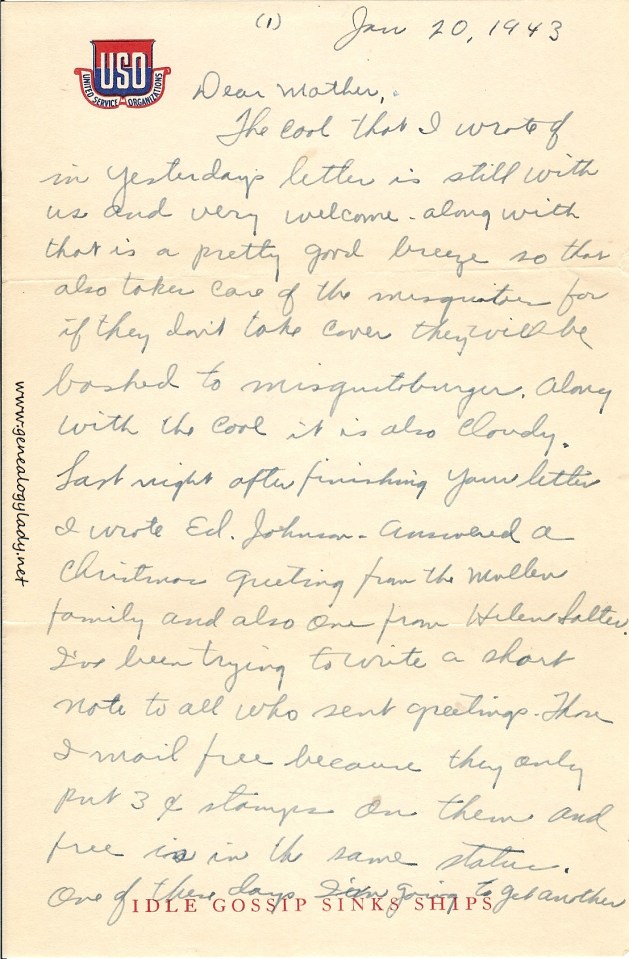 (1) Jan 20, 1943
USO
UNITED SERVICE ORGANIZATIONS
Dear Mother,
The cool that I wrote of
in yesterdays letter is still with
us and very welcome - along with
that is a pretty good breeze so that
also takes care of the misquitoes for
if they don't take cover they will be
bashed to misquitoburger. Along
with the cool it is also cloudy.
Last night after finishing your letter
I wrote Ed. Johnson - Answered a
Christmas greeting from the Mullen
family and also one from Helen Salter.
I've been trying to write a short
note to all who sent greetings. Those
I mail free because they only
put 3¢ stamps on them and
free is in the same status.
One of these days I'm going to get another
IDLE GOSSIP SINKS SHIPS
www.genealogylady.net